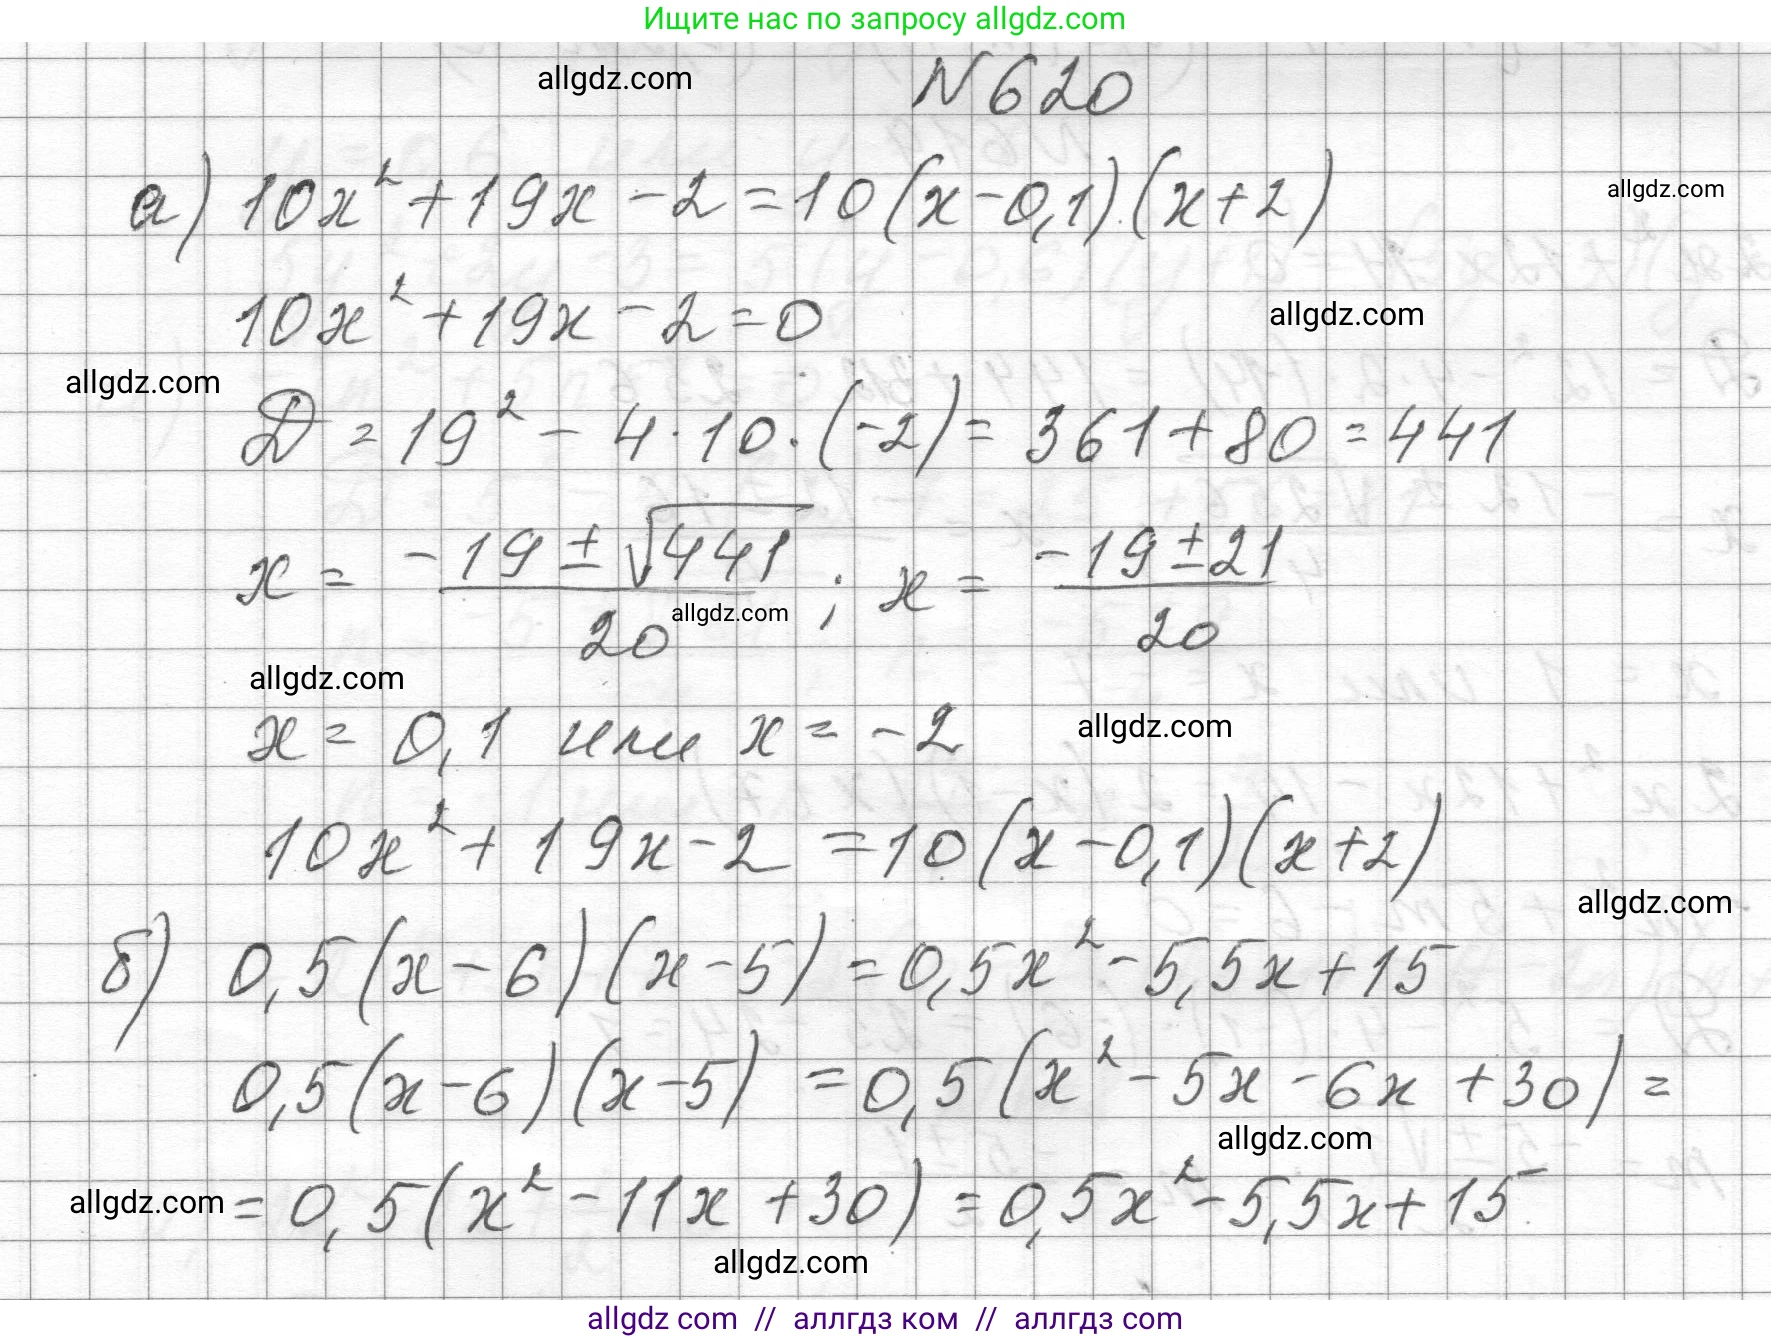 Ищите нас по запросу allgdz.com
allgdz.com
N 620
а) 10x² + 19x - 2 = 10(x - 0,1)(x + 2)
allgdz.com
10x² + 19x - 2 = 0
allgdz.com
allgdz.com
D = 19² - 4 · 10 · (-2) = 361 + 80 = 441
x = (-19 ± √441)/20 ; x = (-19 ± 21)/20
allgdz.com
allgdz.com
x = 0,1 или x = -2
allgdz.com
10x² + 19x - 2 = 10(x - 0,1)(x + 2)
allgdz.com
б) 0,5(x - 6)(x - 5) = 0,5x² - 5,5x + 15
0,5(x - 6)(x - 5) = 0,5(x² - 5x - 6x + 30) =
allgdz.com
allgdz.com
= 0,5(x² - 11x + 30) = 0,5x² - 5,5x + 15
allgdz.com
allgdz com // аллгдз ком // allgdz com